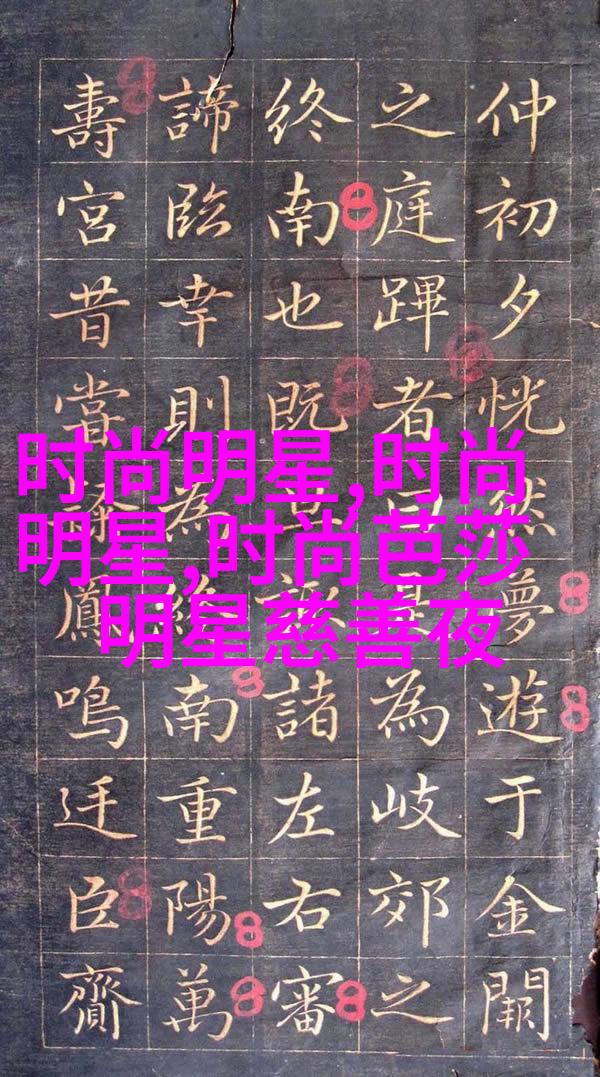 时尚明星,时尚
明星,时尚芭莎
明星慈善夜
仲初夕恍然夢遊于金闕
之庭蹕者曰是為岐郊之
終南也既諸左右審
諦臨幸則為南重陽萬
壽宮昔當鳳鳴廷臣齎